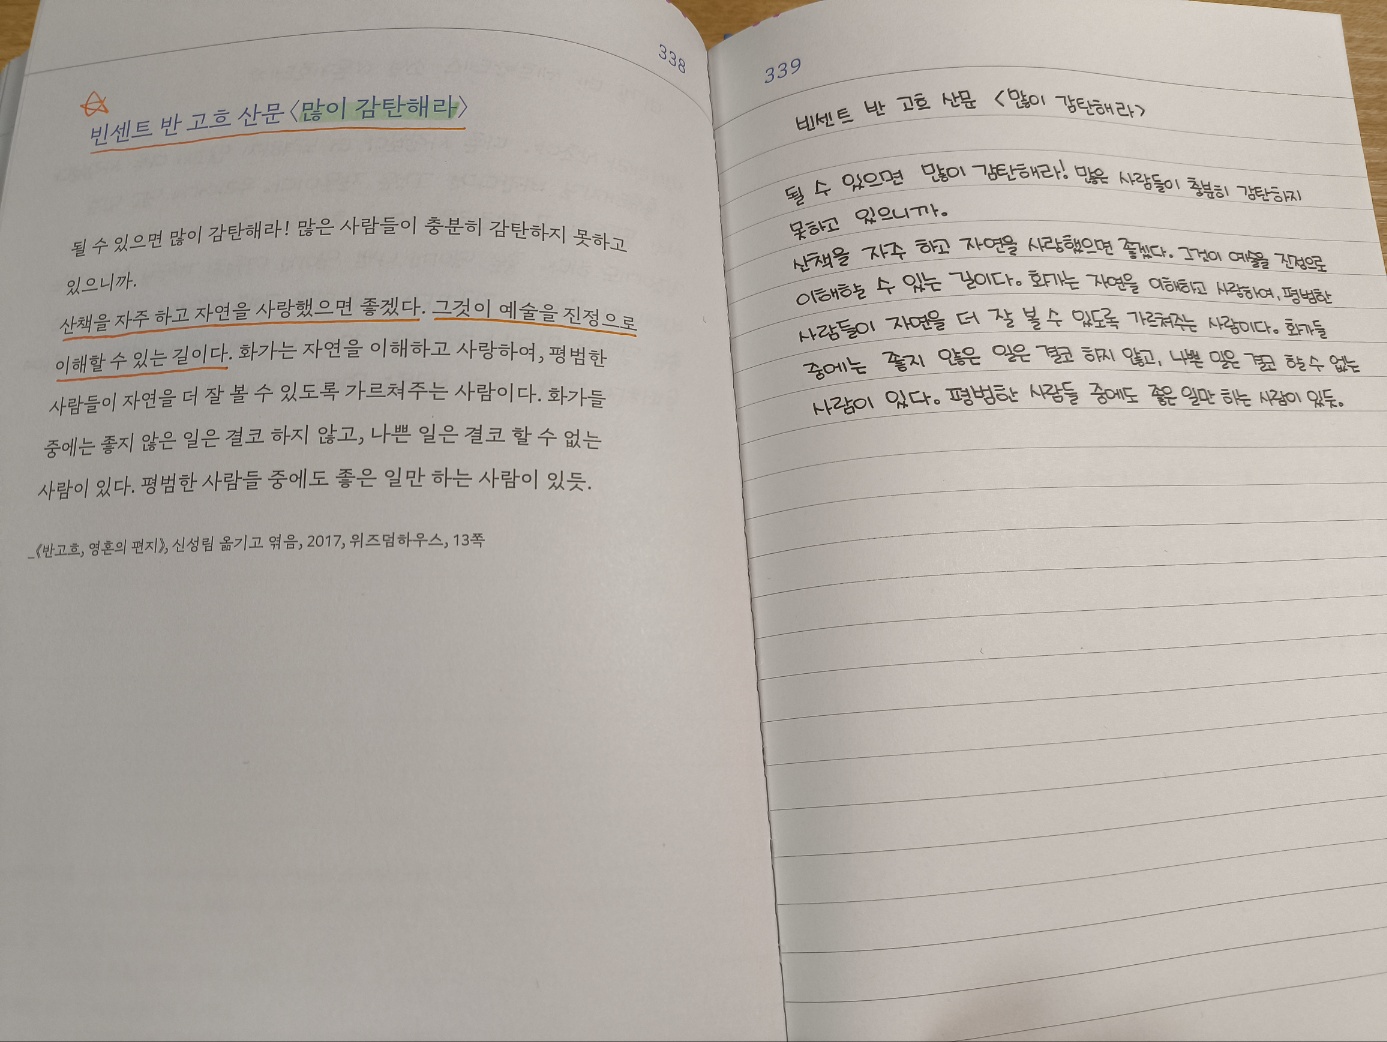 338
빈센트 반 고흐 산문 〈많이 감탄해라〉
될 수 있으면 많이 감탄해라! 많은 사람들이 충분히 감탄하지 못하고
있으니까.
산책을 자주 하고 자연을 사랑했으면 좋겠다. 그것이 예술을 진정으로
이해할 수 있는 길이다. 화가는 자연을 이해하고 사랑하여, 평범한
사람들이 자연을 더 잘 볼 수 있도록 가르쳐주는 사람이다. 화가들
중에는 좋지 않은 일은 결코 하지 않고, 나쁜 일은 결코 할 수 없는
사람이 있다. 평범한 사람들 중에도 좋은 일만 하는 사람이 있듯.
_《반고흐, 영혼의 편지》, 신성림 옮기고 엮음, 2017, 위즈덤하우스, 13쪽
339
빈센트 반 고흐 산문 <많이 감탄해라>
될 수 있으면 많이 감탄해라! 많은 사람들이 충분히 감탄하지
못하고 있으니까.
산책을 자주 하고 자연을 사랑했으면 좋겠다. 그것이 예술을 진정으로
이해할 수 있는 길이다. 화가는 자연을 이해하고 사랑하여, 평범한
사람들이 자연을 더 잘 볼 수 있도록 가르쳐주는 사람이다. 화가들
중에는 좋지 않은 일은 결코 하지 않고, 나쁜 일은 결코 할 수 없는
사람이 있다. 평범한 사람들 중에도 좋은 일만 하는 사람이 있듯.